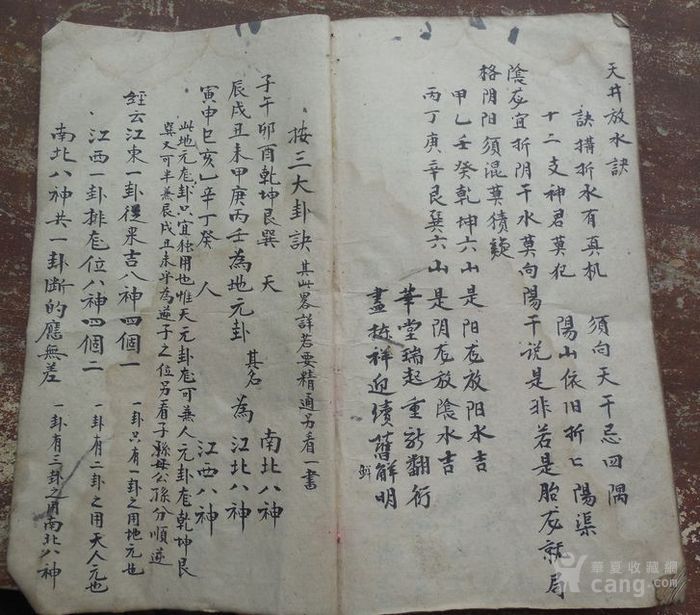 天井放水訣
訣搆折水有真机 須向天干忌四隅
十二支神君莫犯 陽山依旧折匕陽渠
陰龙宜折阴干水莫向陽干说是非若是胎龙就局
格阴阳须混莫猜疑
甲乙壬癸乾坤六山是阳龙放阳水吉
丙丁庚辛艮巽六山是阴龙放陰水吉
華堂瑞起重新翻衍
畫栋祥迎续旧解明
按三大卦訣 其此畧詳若要精通另看一書
子午卯酉乾坤艮巽 天 南北八神
辰戌丑未甲庚丙壬為地元卦 其名為江北八神
寅申巳亥乙辛丁癸 人 江西八神
此地元龙卦只宜独用也惟天元卦龙可兼人元卦龙乾坤艮
巽又可半兼辰戌丑未乎為逆子之位另看子縣母公孫分順逆
經云江東一卦從來吉八神四個一 一卦只有一卦之用地元也
江西一卦排龙位八神四個二 一卦有二卦之用天人元也
南北八神共一卦断的應無差 一卦有三卦之用南北八神
華夏收藏網
cang.com